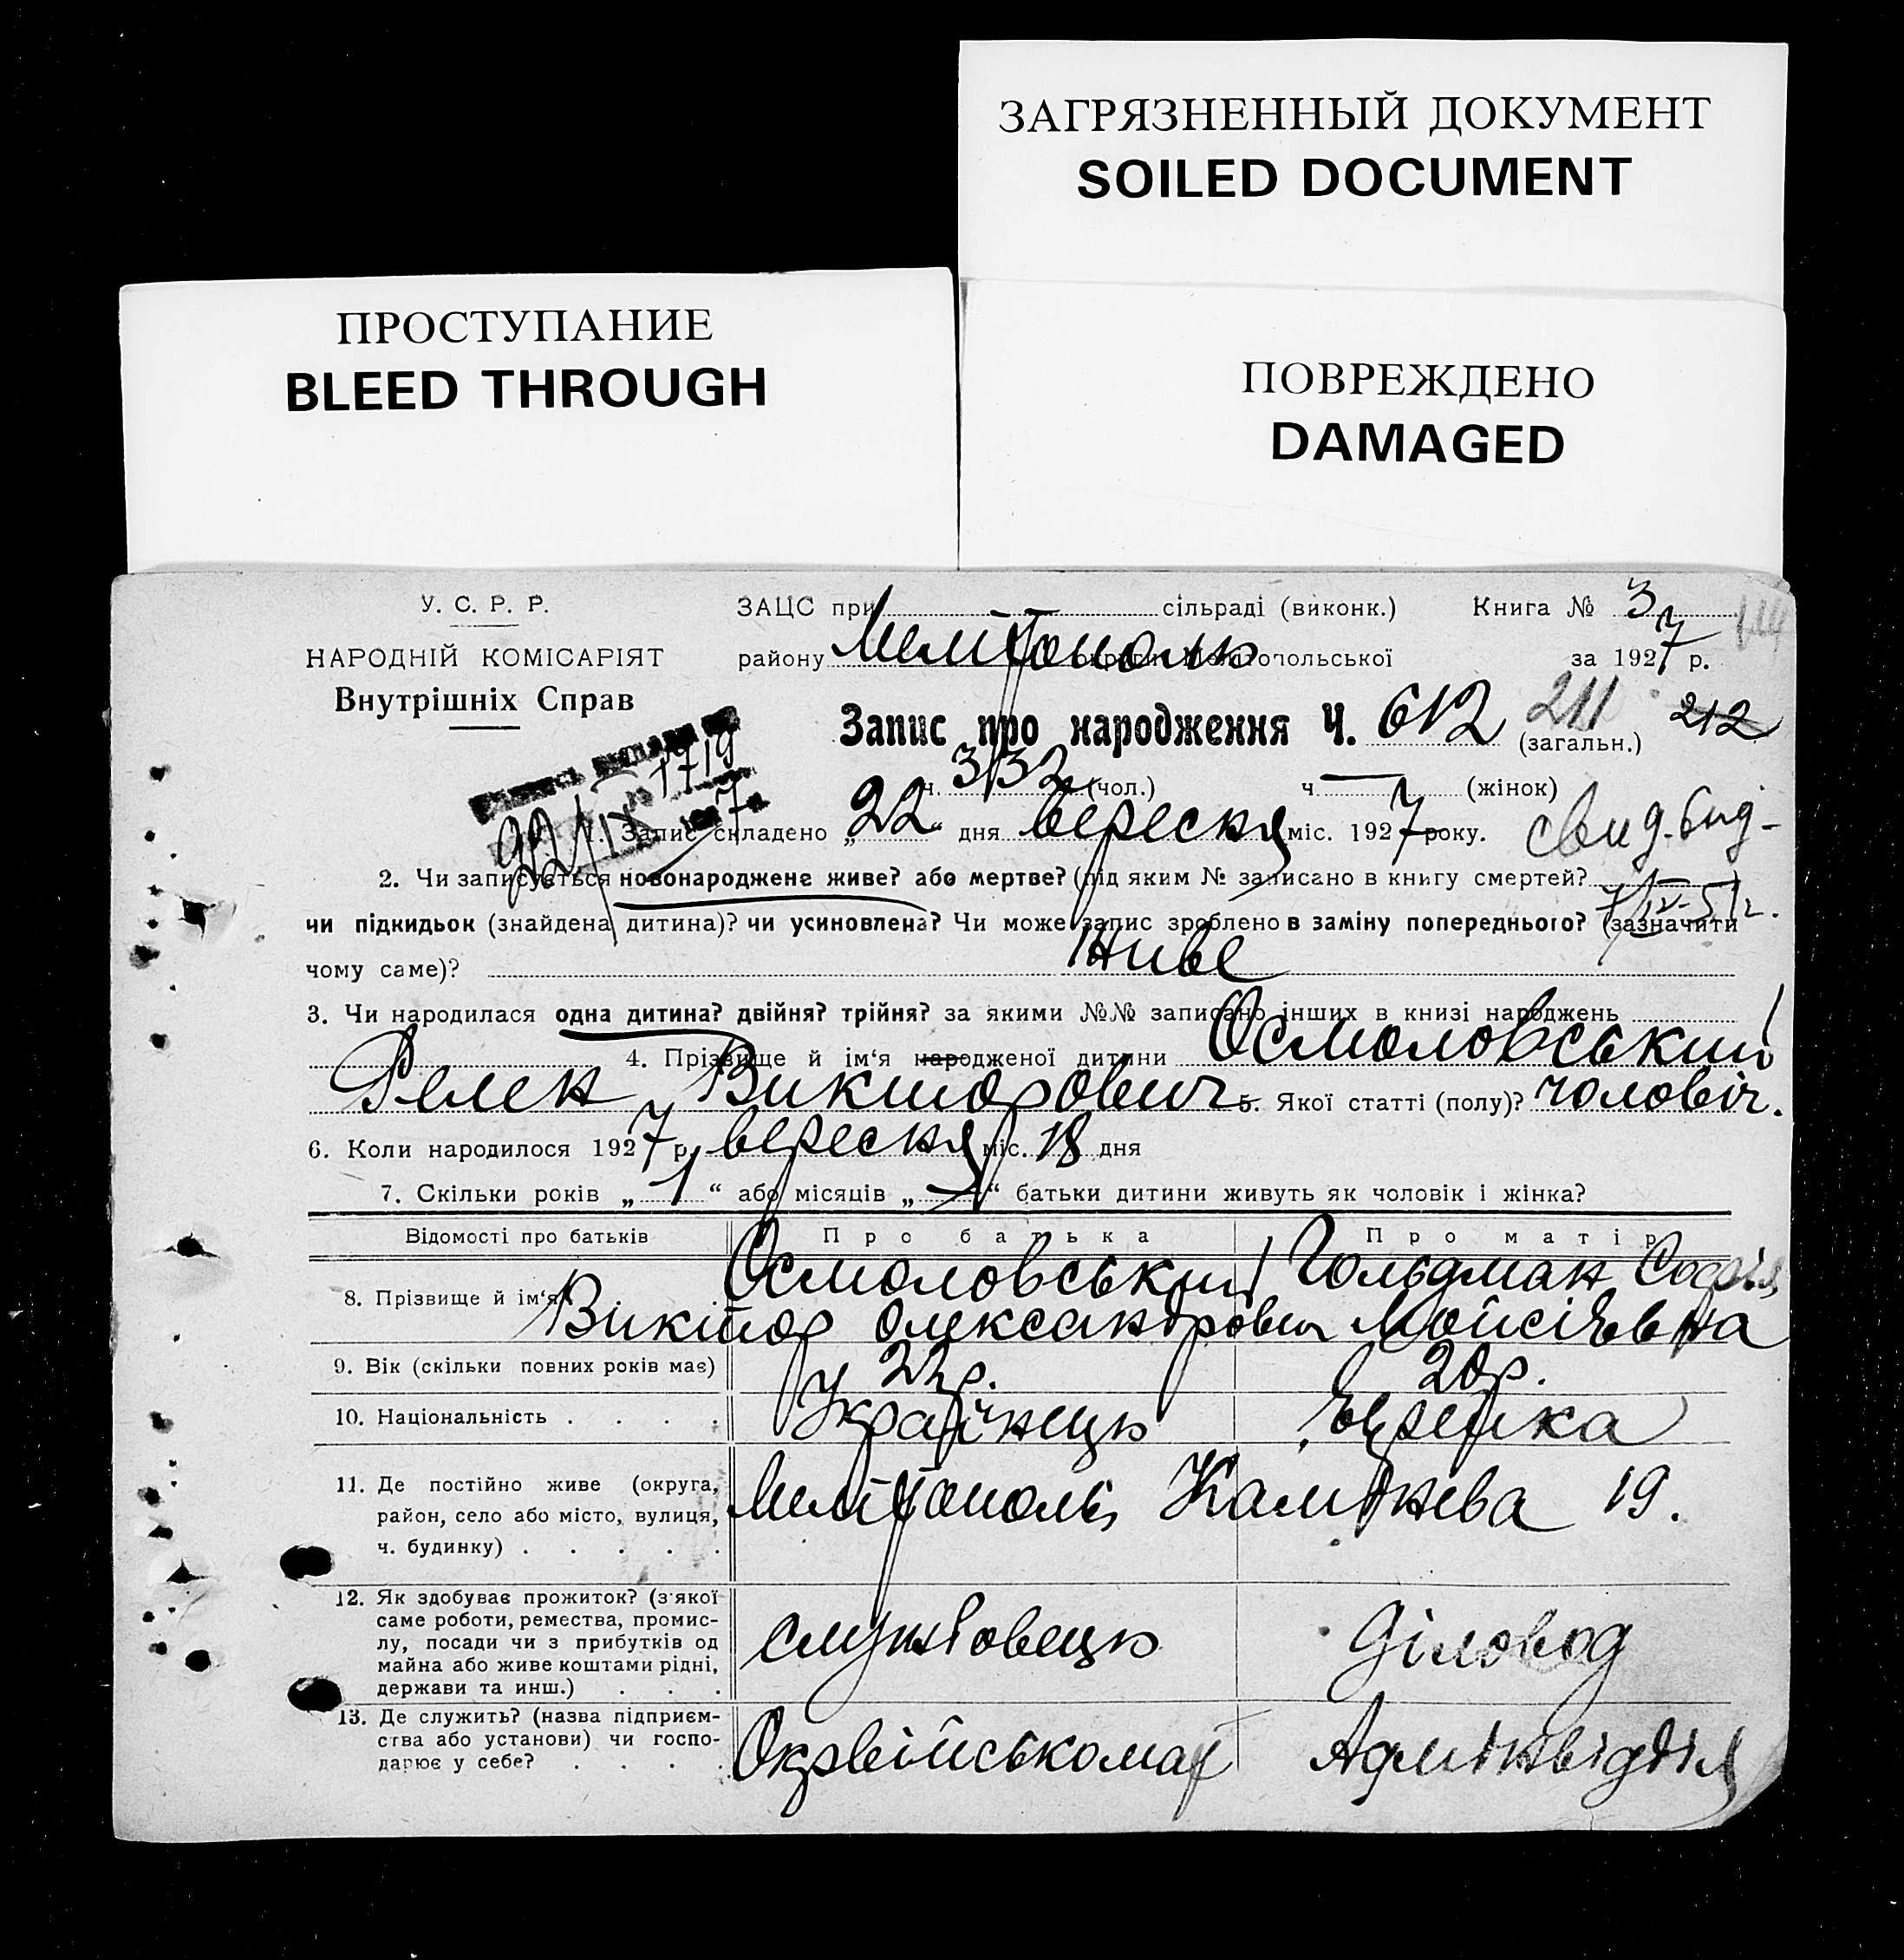 ЗАГРЯЗНЕННЫЙ ДОКУМЕНТ
SOILED DOCUMENT
ПРОСТУПАНИЕ
BLEED THROUGH
ПОВРЕЖДЕНО
DAMAGED
У. С. Р. Р.
НАРОДНІЙ КОМІСАРІЯТ
Внутрішніх Справ
ЗАЦС при сільраді (виконк.) Книга № 3
району Мелітополь округи Мелітопольської за 1927 р.
Запис про народження Ч. 612 211 212
(загальн.)
ч. 332 (чол.) ч. — (жінок)
1719
22/IX 1927
1. Запис складено „22“ дня вересня міс. 1927 року.
2. Чи записується новонароджене живе? або мертве? (під яким № записано в книгу смертей?
7/IV-51г.
чи підкидьок (знайдена дитина)? чи усиновлена? Чи може запис зроблено в заміну попереднього? (зазначити
чому саме)? Живе
3. Чи народилася одна дитина? двійня? трійня? за якими №№ записано інших в книзі народжень
4. Прізвище й ім‘я народженої дитини Осмоловський
Фелен Викторович 5. Якої статті (полу)? чоловіч.
6. Коли народилося 1927 р. вересня міс. 18 дня
7. Скільки років „1“ або місяців „—“ батьки дитини живуть як чоловік і жінка?
Відомості про батьків Про батька Про матір
8. Прізвище й ім‘я Осмоловський Виктор Олександрович Гольдман Софія Мойсіївна
9. Вік (скільки повних років має) 22 р. 20 р.
10. Національність . . . . Українець Єврейка
11. Де постійно живе (округа,
район, село або місто, вулиця,
ч. будинку) . . . . .
Мелітополь, Камінева 19.
12. Як здобуває прожиток? (з якої
саме роботи, ремества, промис-
лу, посади чи з прибутків од
майна або живе коштами рідні,
держави та инш.) . . .
службовець діловод
13. Де служить? (назва підприєм-
ства або установи) чи госпо-
дарює у себе? . . . .
Окрвійськомат Адмінвідділ